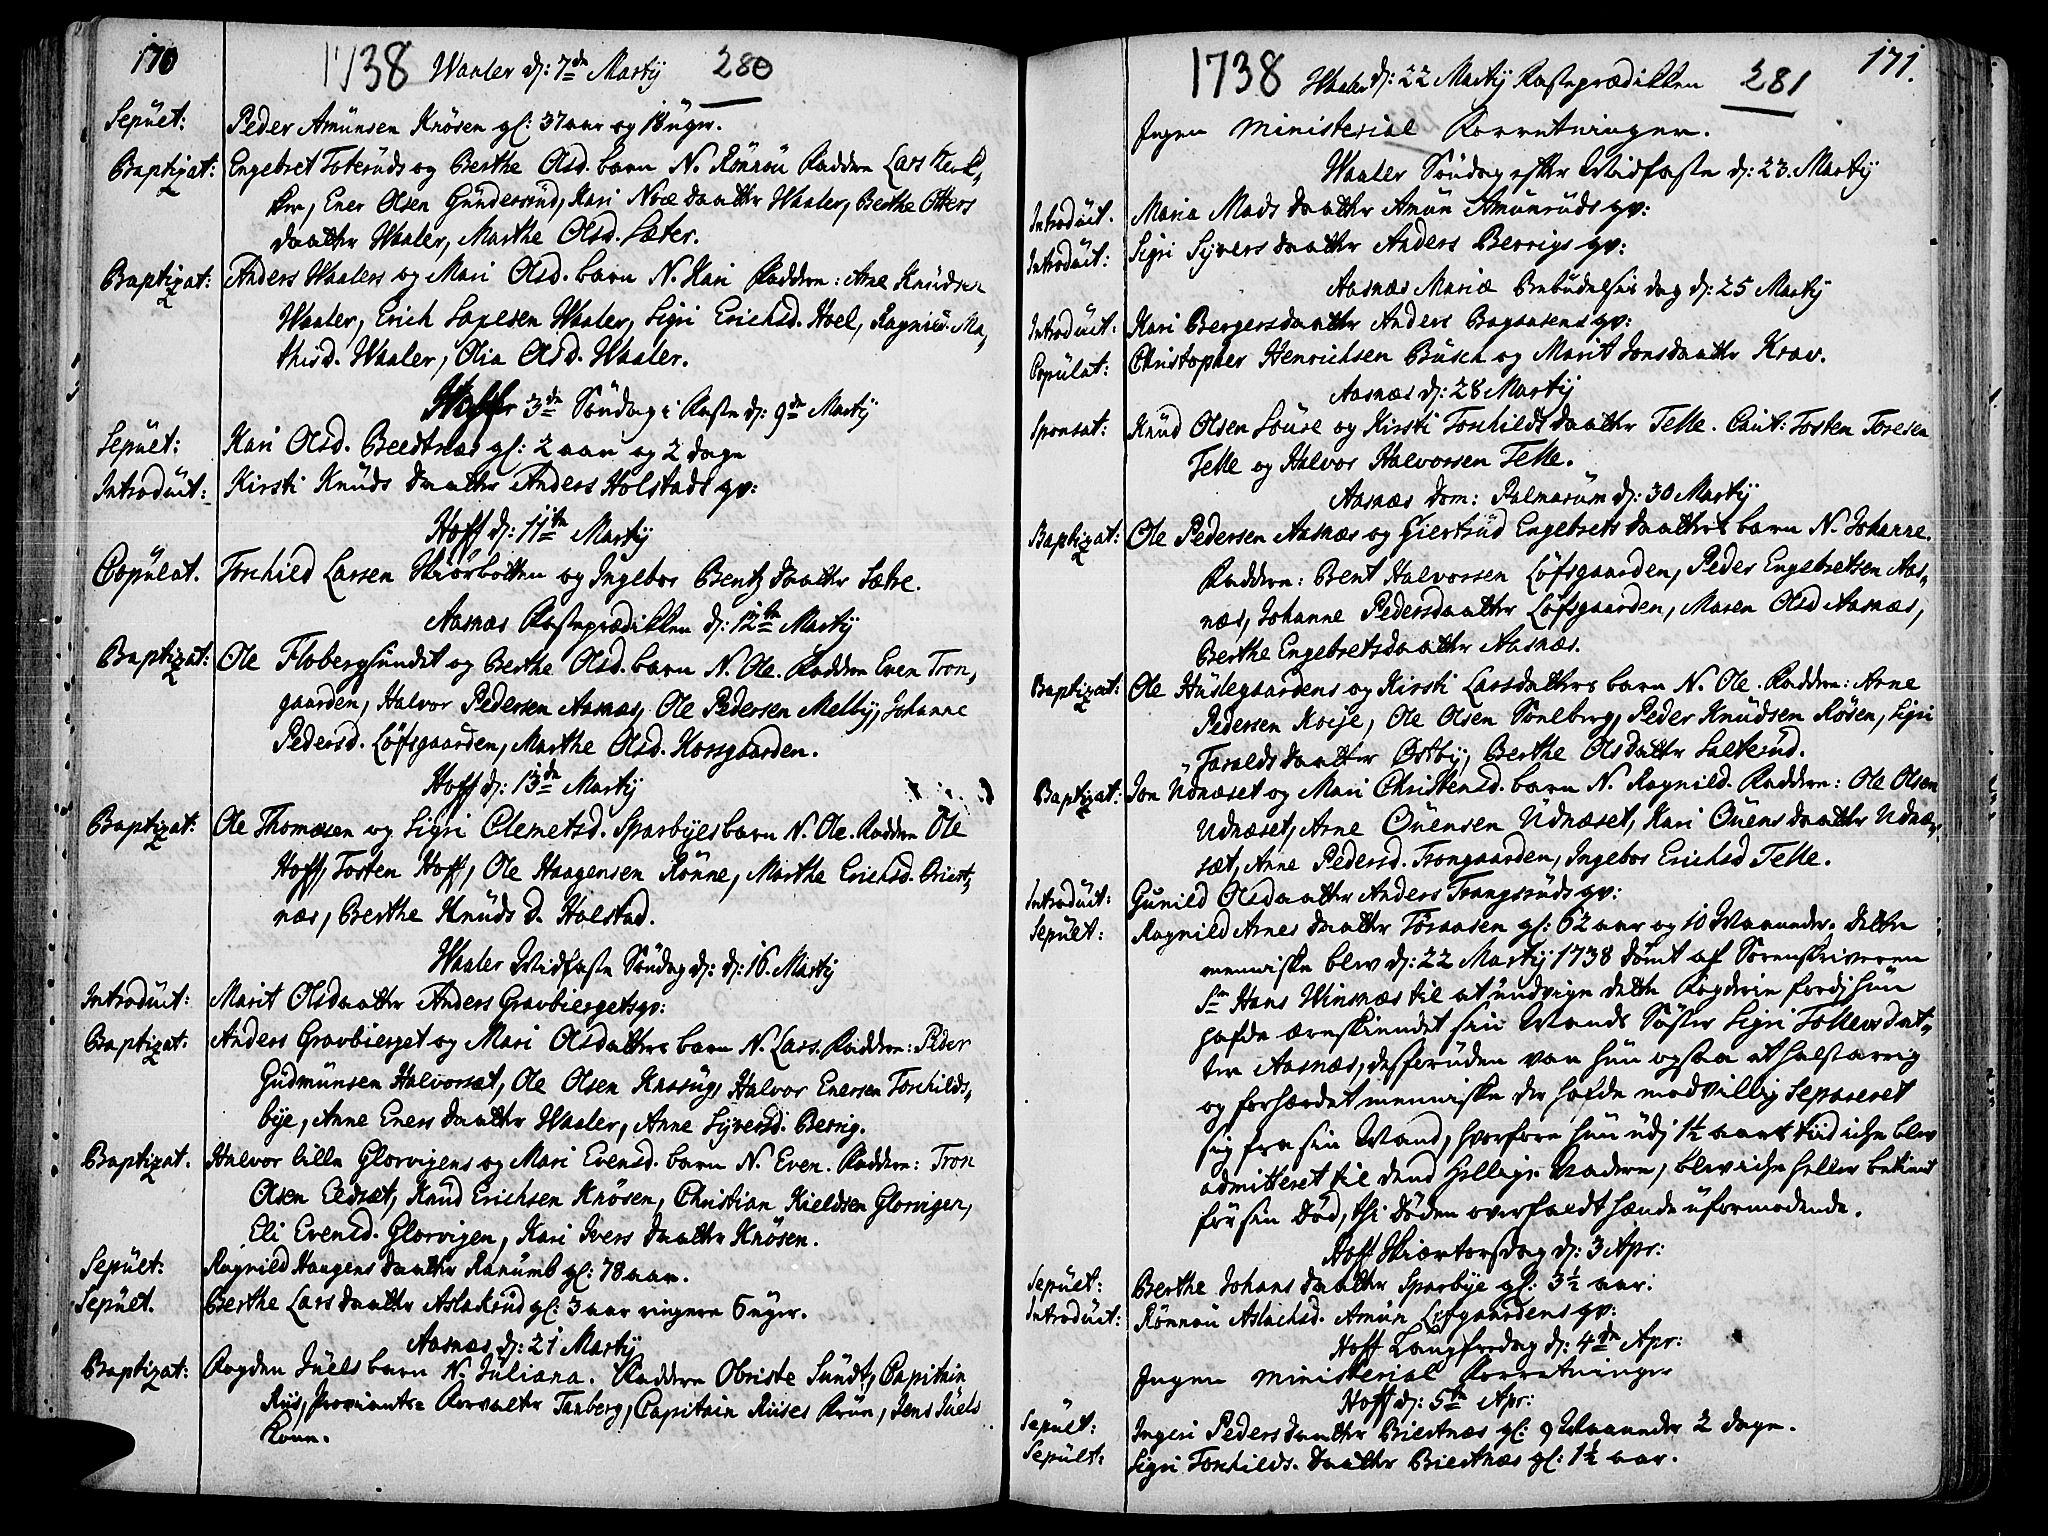 170
1738 Waaler d: 7de Martij 280
Sepült: Peder Amünsen Knösen gl: 37 aar og 18 uger.
Baptizat: Engebret Toterüds og Berthe Olsd. barn N. Rönnou Faddere Lars Kirk-
, Ener Olsen Gunderrüd, Kari Noæ daatter Waaler, Berthe Otters
daatter Waaler, Marthe Olsd. Sæter.
Baptizat: Anders Waalers og Mari Olsd. barn N. Kari Faddere: Arne Knudsen
Waaler, Erich Waaler, Sigri Erichsd. Hoel, Ragnild Ma-
thisd. Waaler, Olia Olsd. Waaler.
Hoff 3de Söndag i Faste d: 9de Martij
Sepült: Kari Olsd. gl: 2 aar og 2 dage
Introduit: Kirsti Knüds daatter Anders Holstads qv:
Hoff d: 11te Martij
Copülat. Torchild Larsen Skiörbotten og Ingebor Bentz daatter Sætre.
Aasnæs Fasteprædikken d: 12te Martij
Baptizat: Ole Flobergsundet og Berthe Olsd. barn N. Ole. Faddere Even Tron-
gaarden, Halvor Pedersen Aasnæs, Ole Pedersen Melby, Johanne
Pedersd. Löfsgaarden, Marthe Olsd. Korsgaarden.
Hoff d: 13de Martij
Baptizat: Ole Thomæsen og Sigri Clemetsd. Sparbyes barn N. Ole. Faddere Ole
Hoff, Tosten Hoff, Ole Haagensen Rönne, Marthe Erichsd. Briest-
næs, Berthe Knüds D. Holstad.
Waaler Midfaste Söndag d: d: 16. Martij
Introduit: Marit Olsdaatter Anders Gravbiergets qv:
Baptizat. Anders Gravbierget og Mari Olsdatters barn N. Lars. Faddere: Peder
Gudmünsen Halvorsæt, Ole Olsen Kassug, Halvor Enersen Torchilds-
bye, Anne Eners daatter Waaler, Anne Syversd. Berrig.
Baptizat. Halvor lille Glorvigens og Mari Evensd. barn N. Even. Faddere: Tron
Olsen Eldsæt, Knüd Erichsen Knösen, Christian Kieldsen Glorvigen,
Eli Evensd. Glorvigen, Kari Ivers daatter Knösen.
Sepült: Ragnild Haagens daatter Ranümb gl: 78 aar.
Sepült. Berthe Lars daatter Aslakrüd gl: 3 aar ringere 6 uger.
Aasnæs d: 21 Martij
Baptizat: Fogden Jüels barn N: Juliana. Faddere Obriste Sundt, Capitain
Riis, Proviants- Forvalter Tanberg, Capitain Riises Frue, Jens Jüels
Kone.
171.
1738 Waaler d: 22 Martij Fasteprædikken 281
Ingen ministerial Forretninger.
Waaler Söndag efter Midfaste d: 23. Martij
Introduit. Maria Mads daatter Amün Amünrüds qv:
Introduit: Sigri Syvers daatter Anders Berrigs qv:
Aasnæs Mariæ Bebudelses dag d: 25 Martij
Introduit: Kari Bergersdaatter Anders Bagaasens qv:
Copülat: Christopher Henrichsen Büsch og Marit Jonsdaatter Krav.
Aasnæs d: 28 Martij
Sponsat: Knüd Olsen Soure og Kirsti Torchilds daatter Telle. Caut: Tosten Toresen
Telle og Halvor Halvorsen Telle.
Aasnæs Dom: Palmarüm d: 30 Martij
Baptizat: Ole Pedersen Aasnæs og Giertrüd Engebrets daatters barn N. Johanne.
Faddere: Bent Halvorsen Löfsgaarden, Peder Engebretsen Aas-
næs, Johanne Pedersdaatter Löfsgaarden, Maren Olsd Aasnæs,
Berthe Engebretsdaatter Aasnæs.
Baptizat: Ole Hüslegaardens og Kirsti Larsdatters barn N. Ole. Faddere: Arne
Pedersen Koeje, Ole Olsen Soneberg, Peder Knüdsen Rösen, Sigri
Taralds daatter Østby, Berthe Olsdatter Salterüd.
Baptizat: Jon Udnæset og Mari Christensd. barn N. Ragnild. Faddere: Ole Olsen
Udnæset, Arne Ouensen Udnæset, Kari Ouens daatter Udnæ-
sæt, Anne Pedersd. Trongaarden, Ingebor Erichsd Telle.
Introduit: Gunild Olsdaatter Anders Trangsrüds qv:
Sepült: Ragnild Arnes daatter Töraasen gl: 62 aar og 10 Maaneder. dette
menniske blev d: 22 Martij 1738 dömt af Sorenskriveren
Sr Hans Winsnæs til at undvige dette Fogderie fordj hun
hafde ærrskiendet sin Mands Söster Sigri Tollevs dat-
ter Aasnæs, desforuden var hun ogsaa et halstarrig
og forhærdet menniske der hafde modvillig Separeret
sig fra sin Mand, hvorfore hun udj 1½ aars tiid icke blev
admitteret til dend Hellige Nadere, blev icke heller betient
för sin död, thi döden overfaldt hende uformodende.
Hoff Skiærtorsdag d: 3 Apr:
Sepült: Berthe Johans daatter Sparbye gl: 3½ aar:
Introduit: Rönnou Aslachsd. Amün Löfgaardens qv:
Hoff Langfredag d: 4de Apr:
Ingen ministerial Forretninger
Hoff d: 5te Apr:
Sepült: Ingeri Peders daatter Briestnæs gl: 9 Maaneder 2 dage.
Sepült: Sigri Torchilds. daatter Briestnæs gl: 1½ aar.